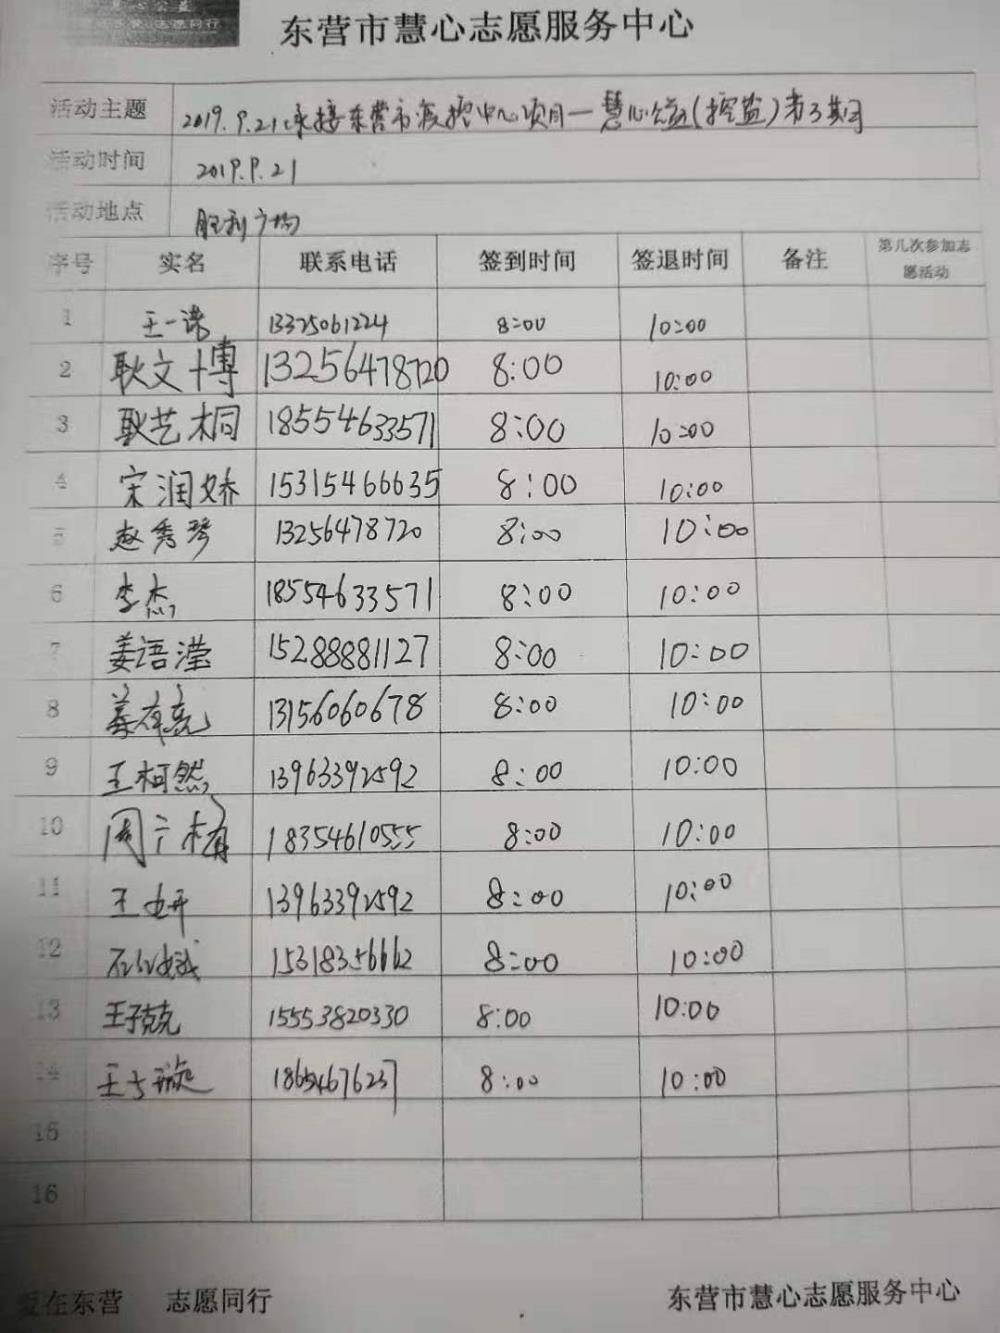 慧心公益
志愿同行
东营市慧心志愿服务中心
活动主题 2019.9.21 承接东营市疾控中心项目—慧心公益(控盐)第3期
活动时间 2019.9.21
活动地点 胜利广场
序号 实名 联系电话 签到时间 签退时间 备注 第几次参加志愿活动
1 王一 13325061224 8:00 10:00
2 耿文博 13256478720 8:00 10:00
3 耿艺桐 18554633571 8:00 10:00
4 宋润娇 15315466635 8:00 10:00
5 赵秀琴 13256478720 8:00 10:00
6 李杰 18554633571 8:00 10:00
7 姜语滢 15288881127 8:00 10:00
8 姜有亮 13156060678 8:00 10:00
9 王柯然 13963392592 8:00 10:00
10 周广梅 18354610555 8:00 10:00
11 王妍 13963392592 8:00 10:00
12 15318356662 8:00 10:00
13 王子克 15553820330 8:00 10:00
14 王 璇 18654676237 8:00 10:00
15
16
爱在东营 志愿同行 东营市慧心志愿服务中心